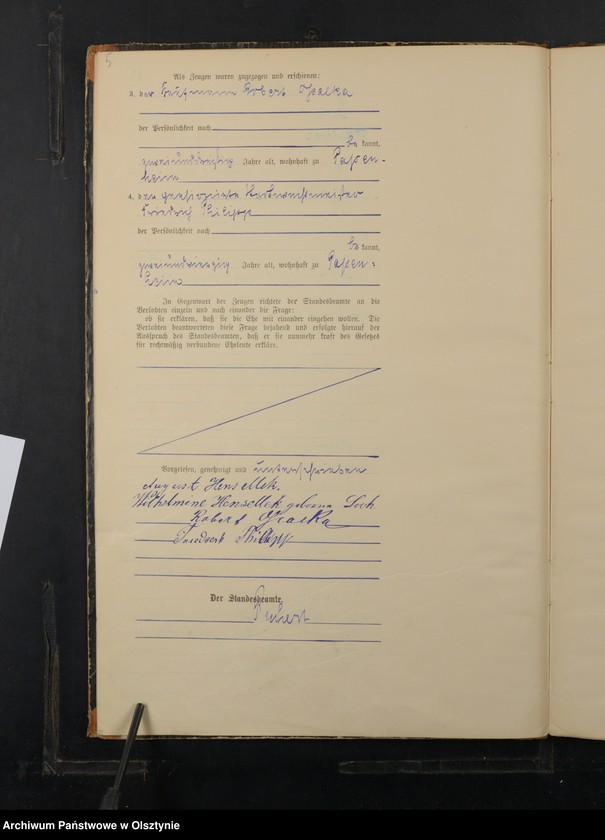 5
Als Zeugen waren zugezogen und erschienen:
3. der Kaufmann Robert
der Persönlichkeit nach
be kannt,
zweiunddreißig Jahre alt, wohnhaft zu
4. der
Friedrich Philipp
der Persönlichkeit nach
be kannt,
zweiundvierzig Jahre alt, wohnhaft zu
In Gegenwart der Zeugen richtete der Standesbeamte an die
Verlobten einzeln und nach einander die Frage:
ob sie erklären, daß sie die Ehe mit einander eingehen wollen. Die
Verlobten beantworteten diese Frage bejahend und erfolgte hierauf der
Ausspruch des Standesbeamten, daß er sie nunmehr kraft des Gesetzes
für rechtmäßig verbundene Eheleute erkläre.
Vorgelesen, genehmigt und unterschrieben
August Hensellek.
Wilhelmine Hensellek geborne
Robert
Philipp
Der Standesbeamte.
Archiwum Państwowe w Olsztynie